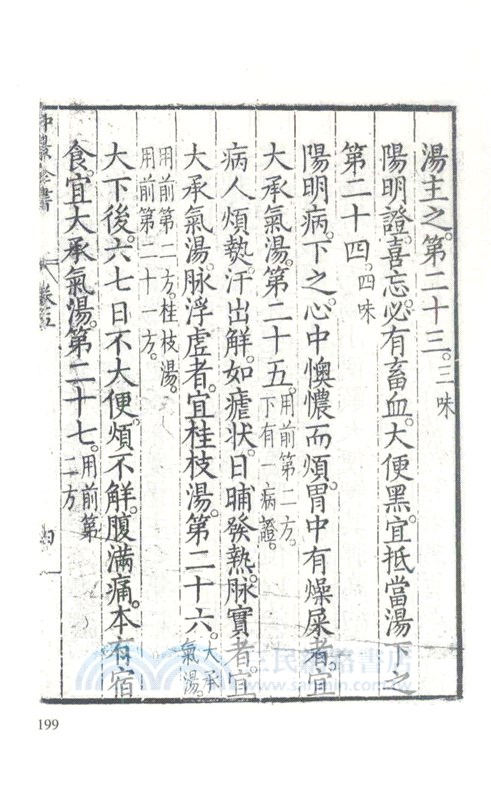 湯主之。第二十三。三味
陽明證。喜忘。必有畜血。大便黑。宜抵當湯下之
第二十四。四味
陽明病。下之。心中懊憹而煩。胃中有燥屎者。宜
大承氣湯。第二十五。用前第二方。下有一病證。
病人煩熱。汗出解。如瘧狀。日晡發熱。脉實者。宜
大承氣湯。脉浮虛者。宜桂枝湯。第二十六。大承氣湯。
用前第二方。桂枝湯。用前第二十一方。
大下後。六七日不大便。煩不解。腹滿痛。本有宿
食。宜大承氣湯。第二十七。用前第二方
三民網路書店
www.sanmin.com.tw
199